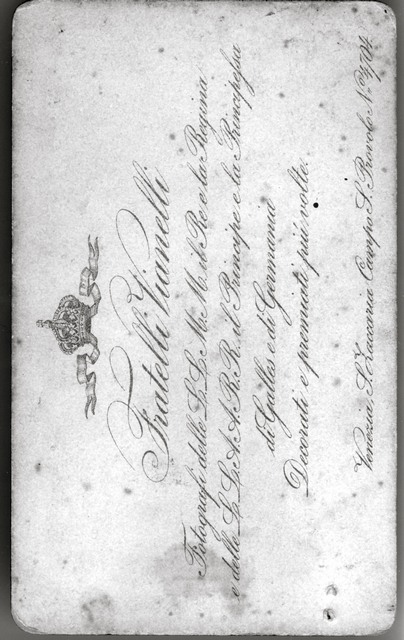 Fratelli Vianelli
Fotografi delle L.L. M.M. il Re e la Regina
e delle L.L. A.A. R.R. il Principe e la Principessa
di Galles e di Germania
Decorati e premiati più volte.
Venezia, S. Zaccaria Campo S. Provolo No. 4704